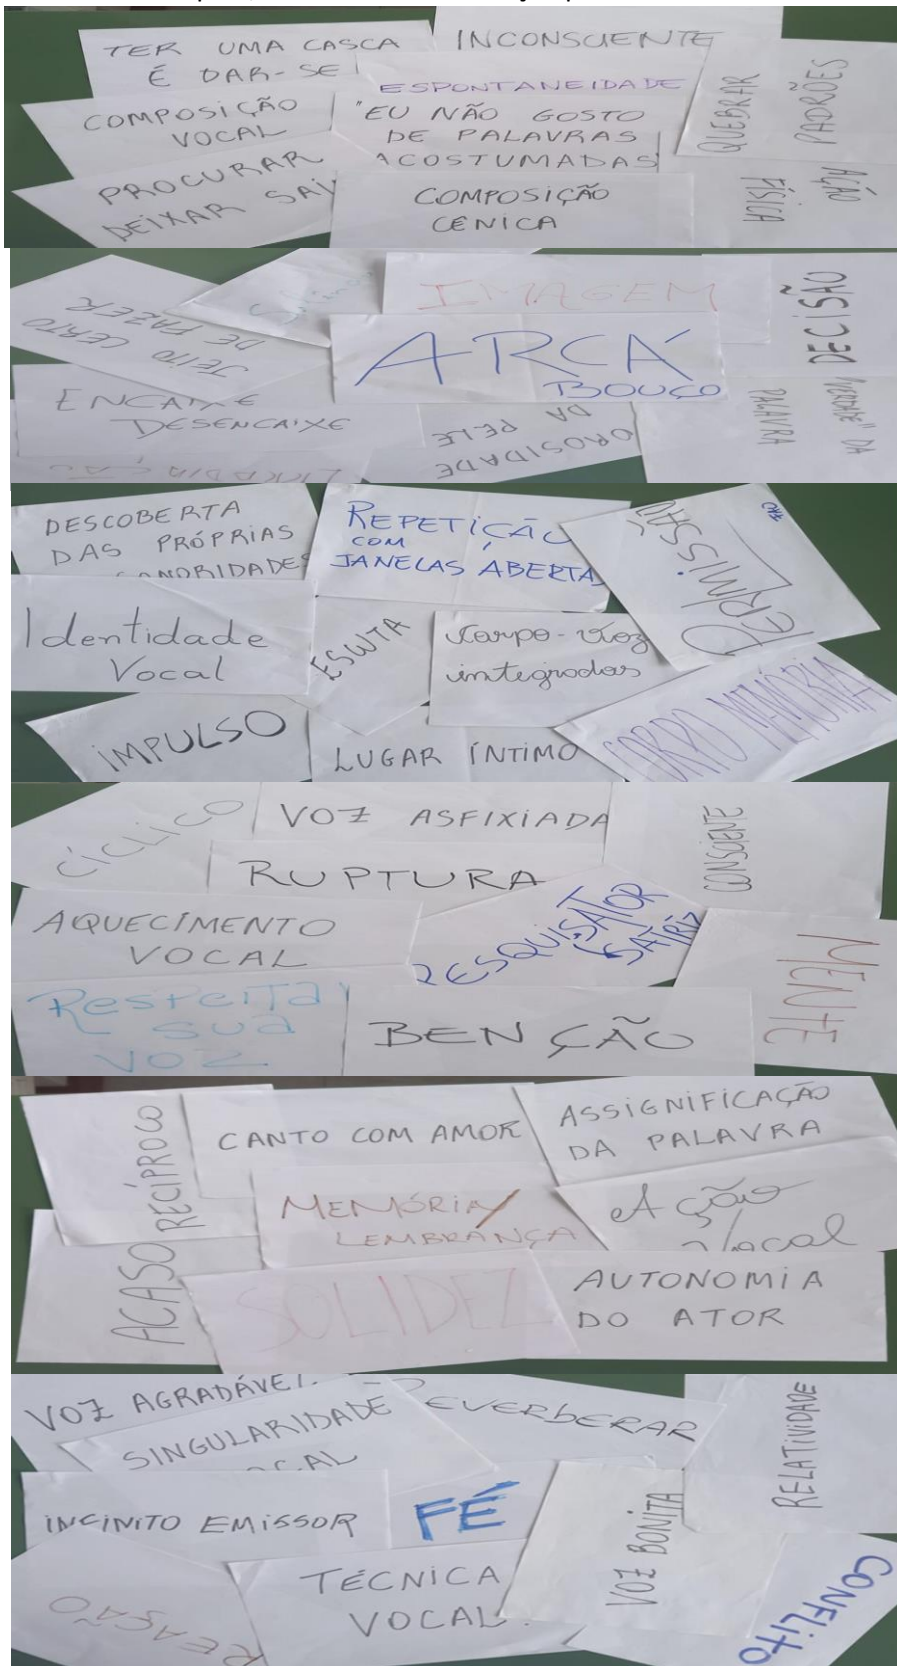 TER UMA CASCA
É DAR-SE
INCONSCIENTE
ESPONTANEIDADE
COMPOSIÇÃO
VOCAL
"EU NÃO GOSTO
DE PALAVRAS
ACOSTUMADAS
QUEBRAR
PADRÕES
PROCURAR
DEIXAR SAI
COMPOSIÇÃO
CÊNICA
AÇÃO
FÍSICA
JEITO CERTO
DE FAZER
IMAGEM
DECISÃO
ARCA
BOUÇO
ENCAIXE
DESENCAIXE
OROSIDADE
DA PELE
VERDADE" DA
PALAVRA
DESCOBERTA
DAS PRÓPRIAS
REPETIÇÃO
COM
JANELAS ABERTAS
PERMISSÃO
Identidade
Vocal
ESCUTA
Corpo-voz
integrados
IMPULSO
LUGAR ÍNTIMO
CORPO MEMÓRIA
CÍCLICO
VOZ ASFIXIADA
CONSCIENTE
RUPTURA
AQUECIMENTO
VOCAL
PESQUISATOR
SATRIZ
MENTE
Respeita
sua
voz
BENÇÃO
RECÍPROCO
CANTO COM AMOR
ASSIGNIFICAÇÃO
DA PALAVRA
MEMÓRIA/
LEMBRANÇA
Ação
Vocal
ACASO
SOLIDEZ
AUTONOMIA
DO ATOR
VOZ AGRADÁVEL
SINGULARIDADE
OCAL
EVERBERAR
RELATIVIDADE
INFINITO EMISSOR
FÉ
VOZ BONITA
REAÇÃO
TÉCNICA
VOCAL
CONFLITO